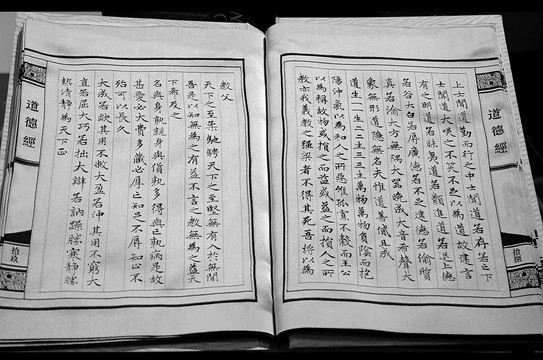 道德經
上士聞道勤而行之中士聞道若存若亡下
士聞道大笑之不笑不足以為道故建言
有之明道若昧夷道若類進道若退上德
若谷大白若辱廣德若不足建德若偷質
真若渝大方無隅大器晚成大音希聲大
象無形道隱無名夫惟道善貸且成
道生一一生二二生三三生萬物萬物負陰而抱
陽沖氣以為和人之所惡惟孤寡不穀而王公
以為稱故物或損之而益或益之而損人之所
教亦我義教之強梁者不得其死吾將以為
教父
天下之至柔馳騁天下之至堅無有入於無間
吾是以知無為之有益不言之教無為之益天
下希及之
名與身孰親身與貨孰多得與亡孰病是故
甚愛必大費多藏必厚亡知足不辱知止不
殆可以長久
大成若缺其用不敝大盈若沖其用不窮大
直若屈大巧若拙大辯若訥躁勝寒靜勝
熱清靜為天下正
道德經